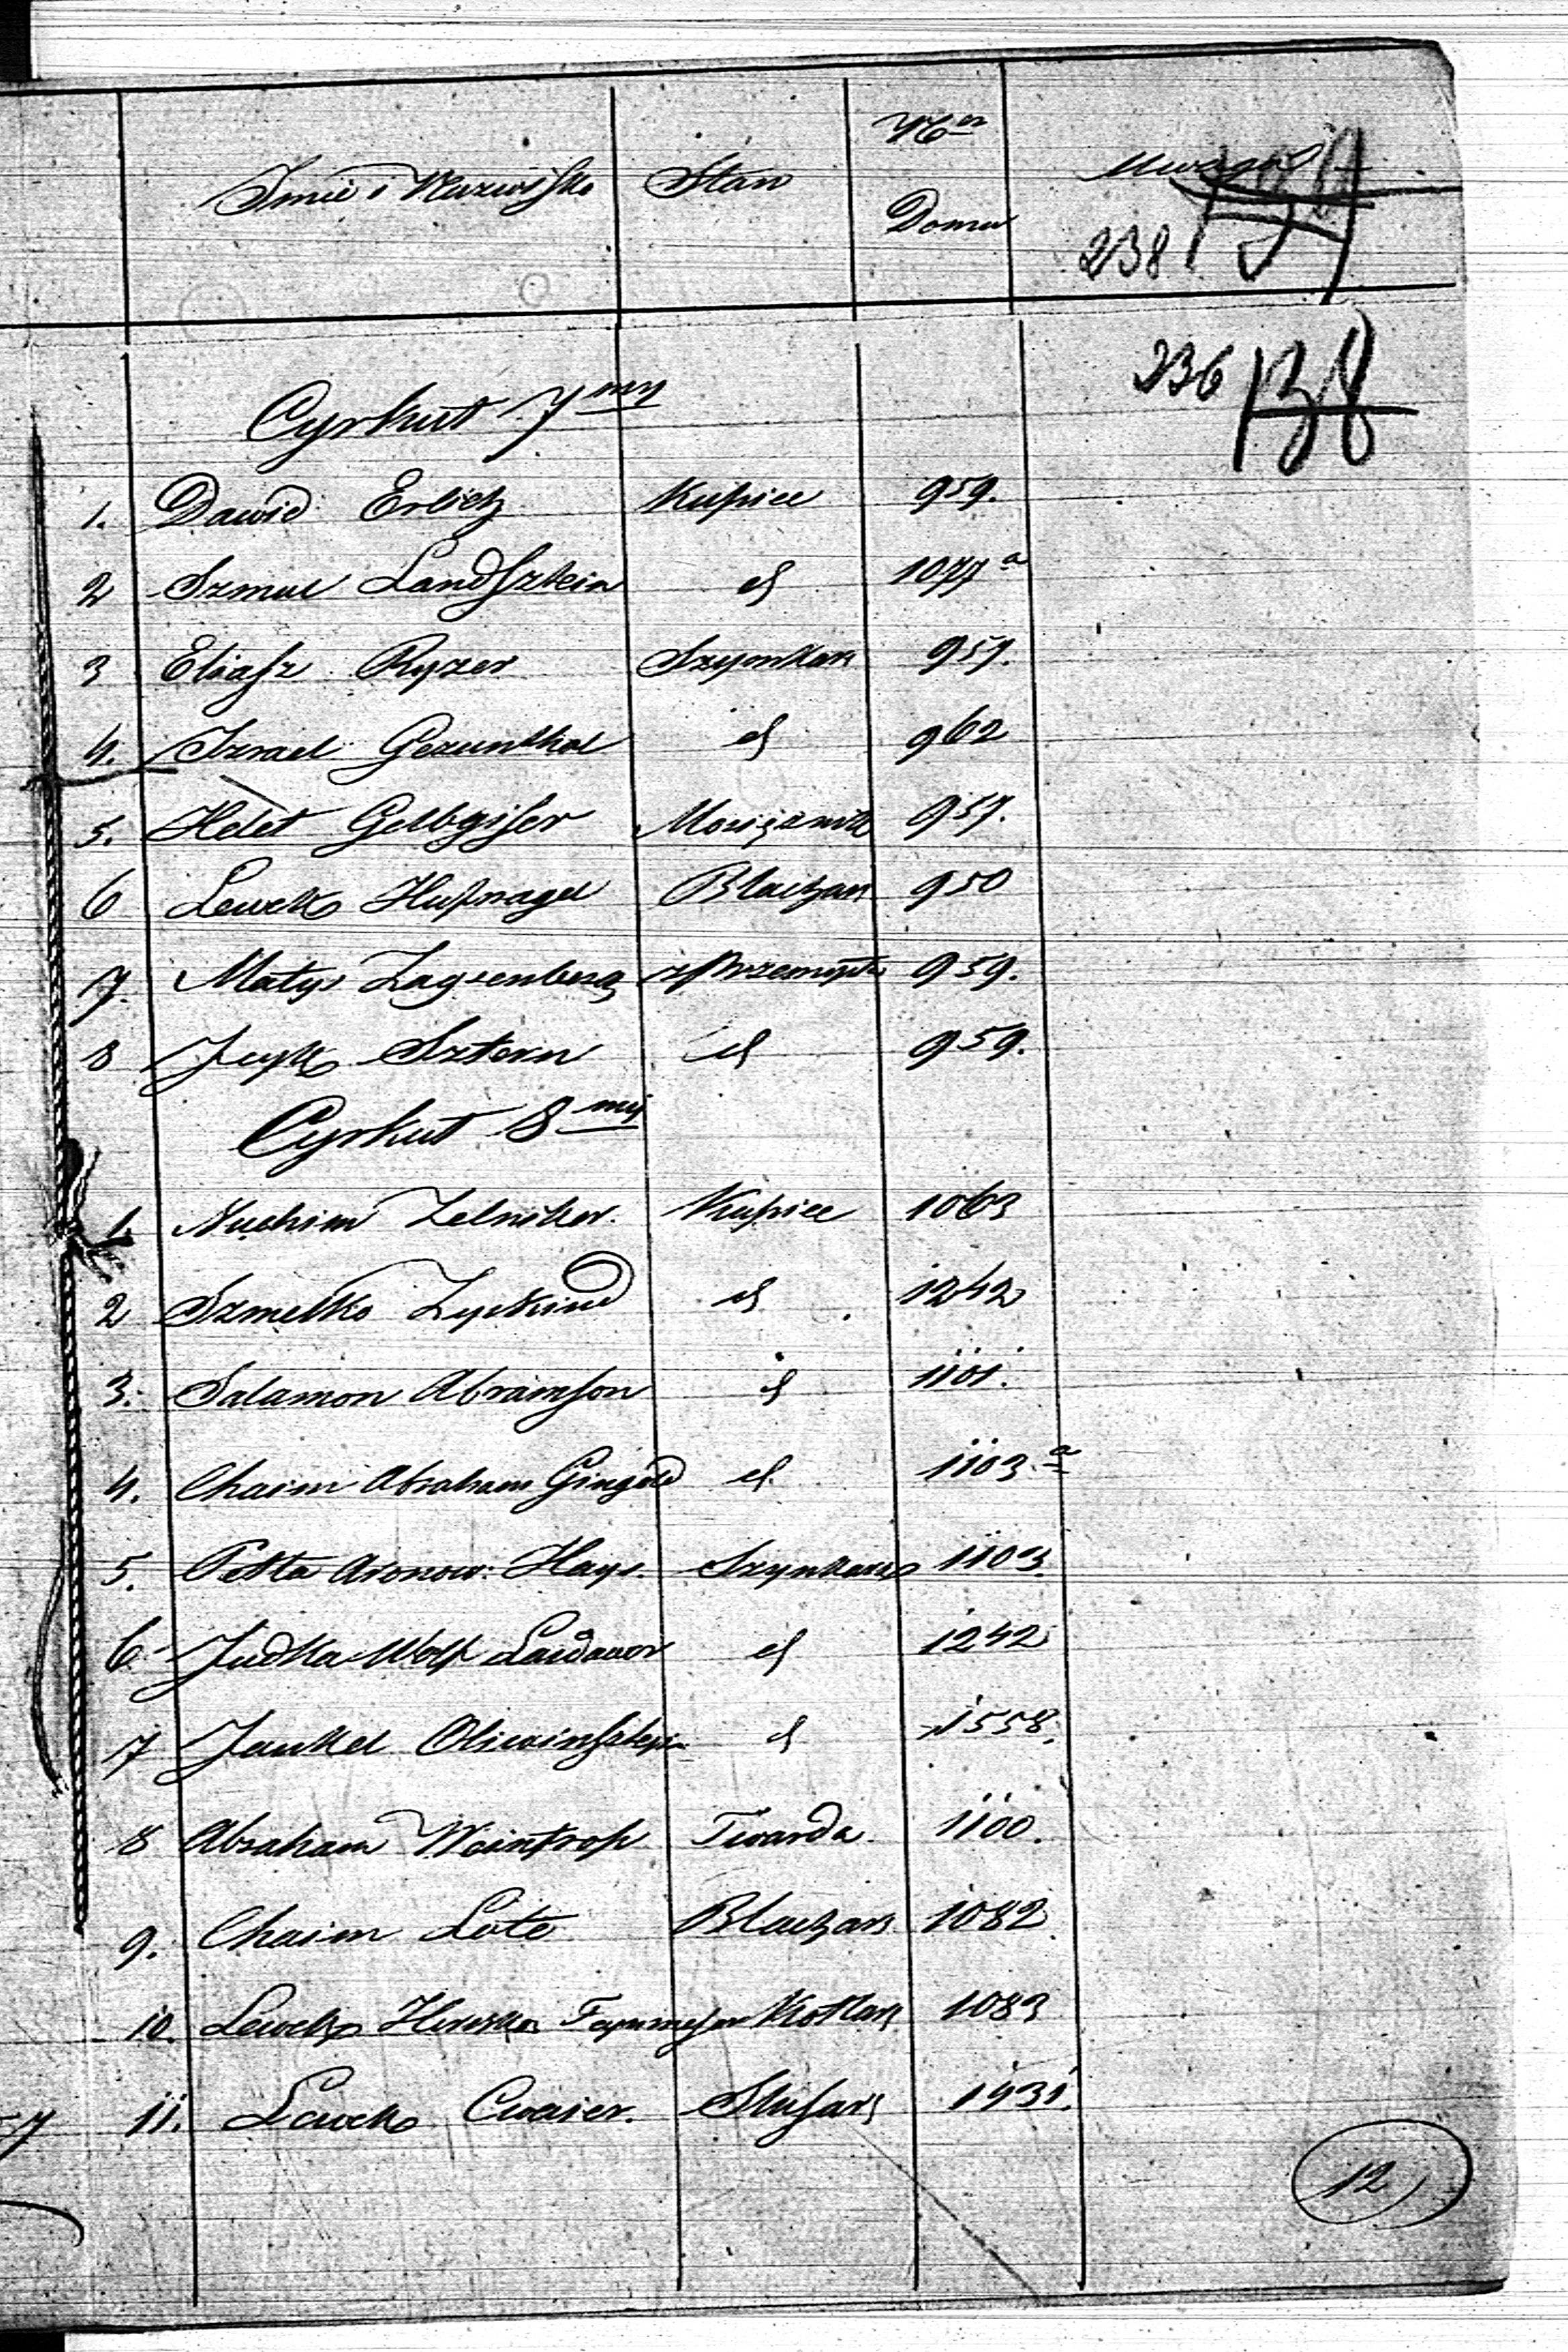 Imie i Nazwisko Stan Ner Domu Uwagi
238
236 138
Cyrkuł 7my
1. Dawid Erlich Kupiec 959.
2 Szmul Landsztein d 1077a
3 Eliasz Ryzer Szynkarz 959.
4. Izrael Gezunthal d 962
5. Helet Gelbgiser Mosiężnik 957.
6 Lewek Hufnagel Blacharz 950
7. Matys z Przemysłu 959.
8 Sztern d 959.
Cyrkuł 8my
1. Nuchim Zelniker. Kupiec 1063
2 Szmelko d 1242
3. Salamon Abramson d 1101.
4. Chaim Abraham Gingold d 1103.a
5. Aronow: Hays. Szynkarz 1103.
6 Judka Wolf d 1242
7 Jankel d 1558.
8 Abraham Weintrop Twarda 1100.
9. Chaim Lote Blacharz 1082
10. Lewek Herszko Kotlarz 1083
11. Lewek Cwaier. Slusarz 1431.
12